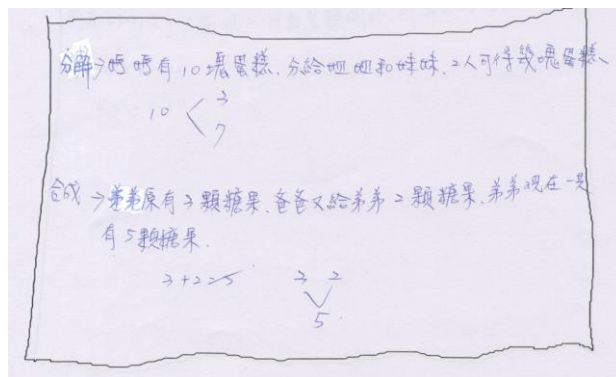 分解→媽媽有10塊蛋糕、分給姐姐和妹妹、2人可得幾塊蛋糕、
10 < 3
7
合成→弟弟原有3顆糖果、爸爸又給弟弟2顆糖果、弟弟現在一共
有5顆糖果.
3+2=5 3 2
5.